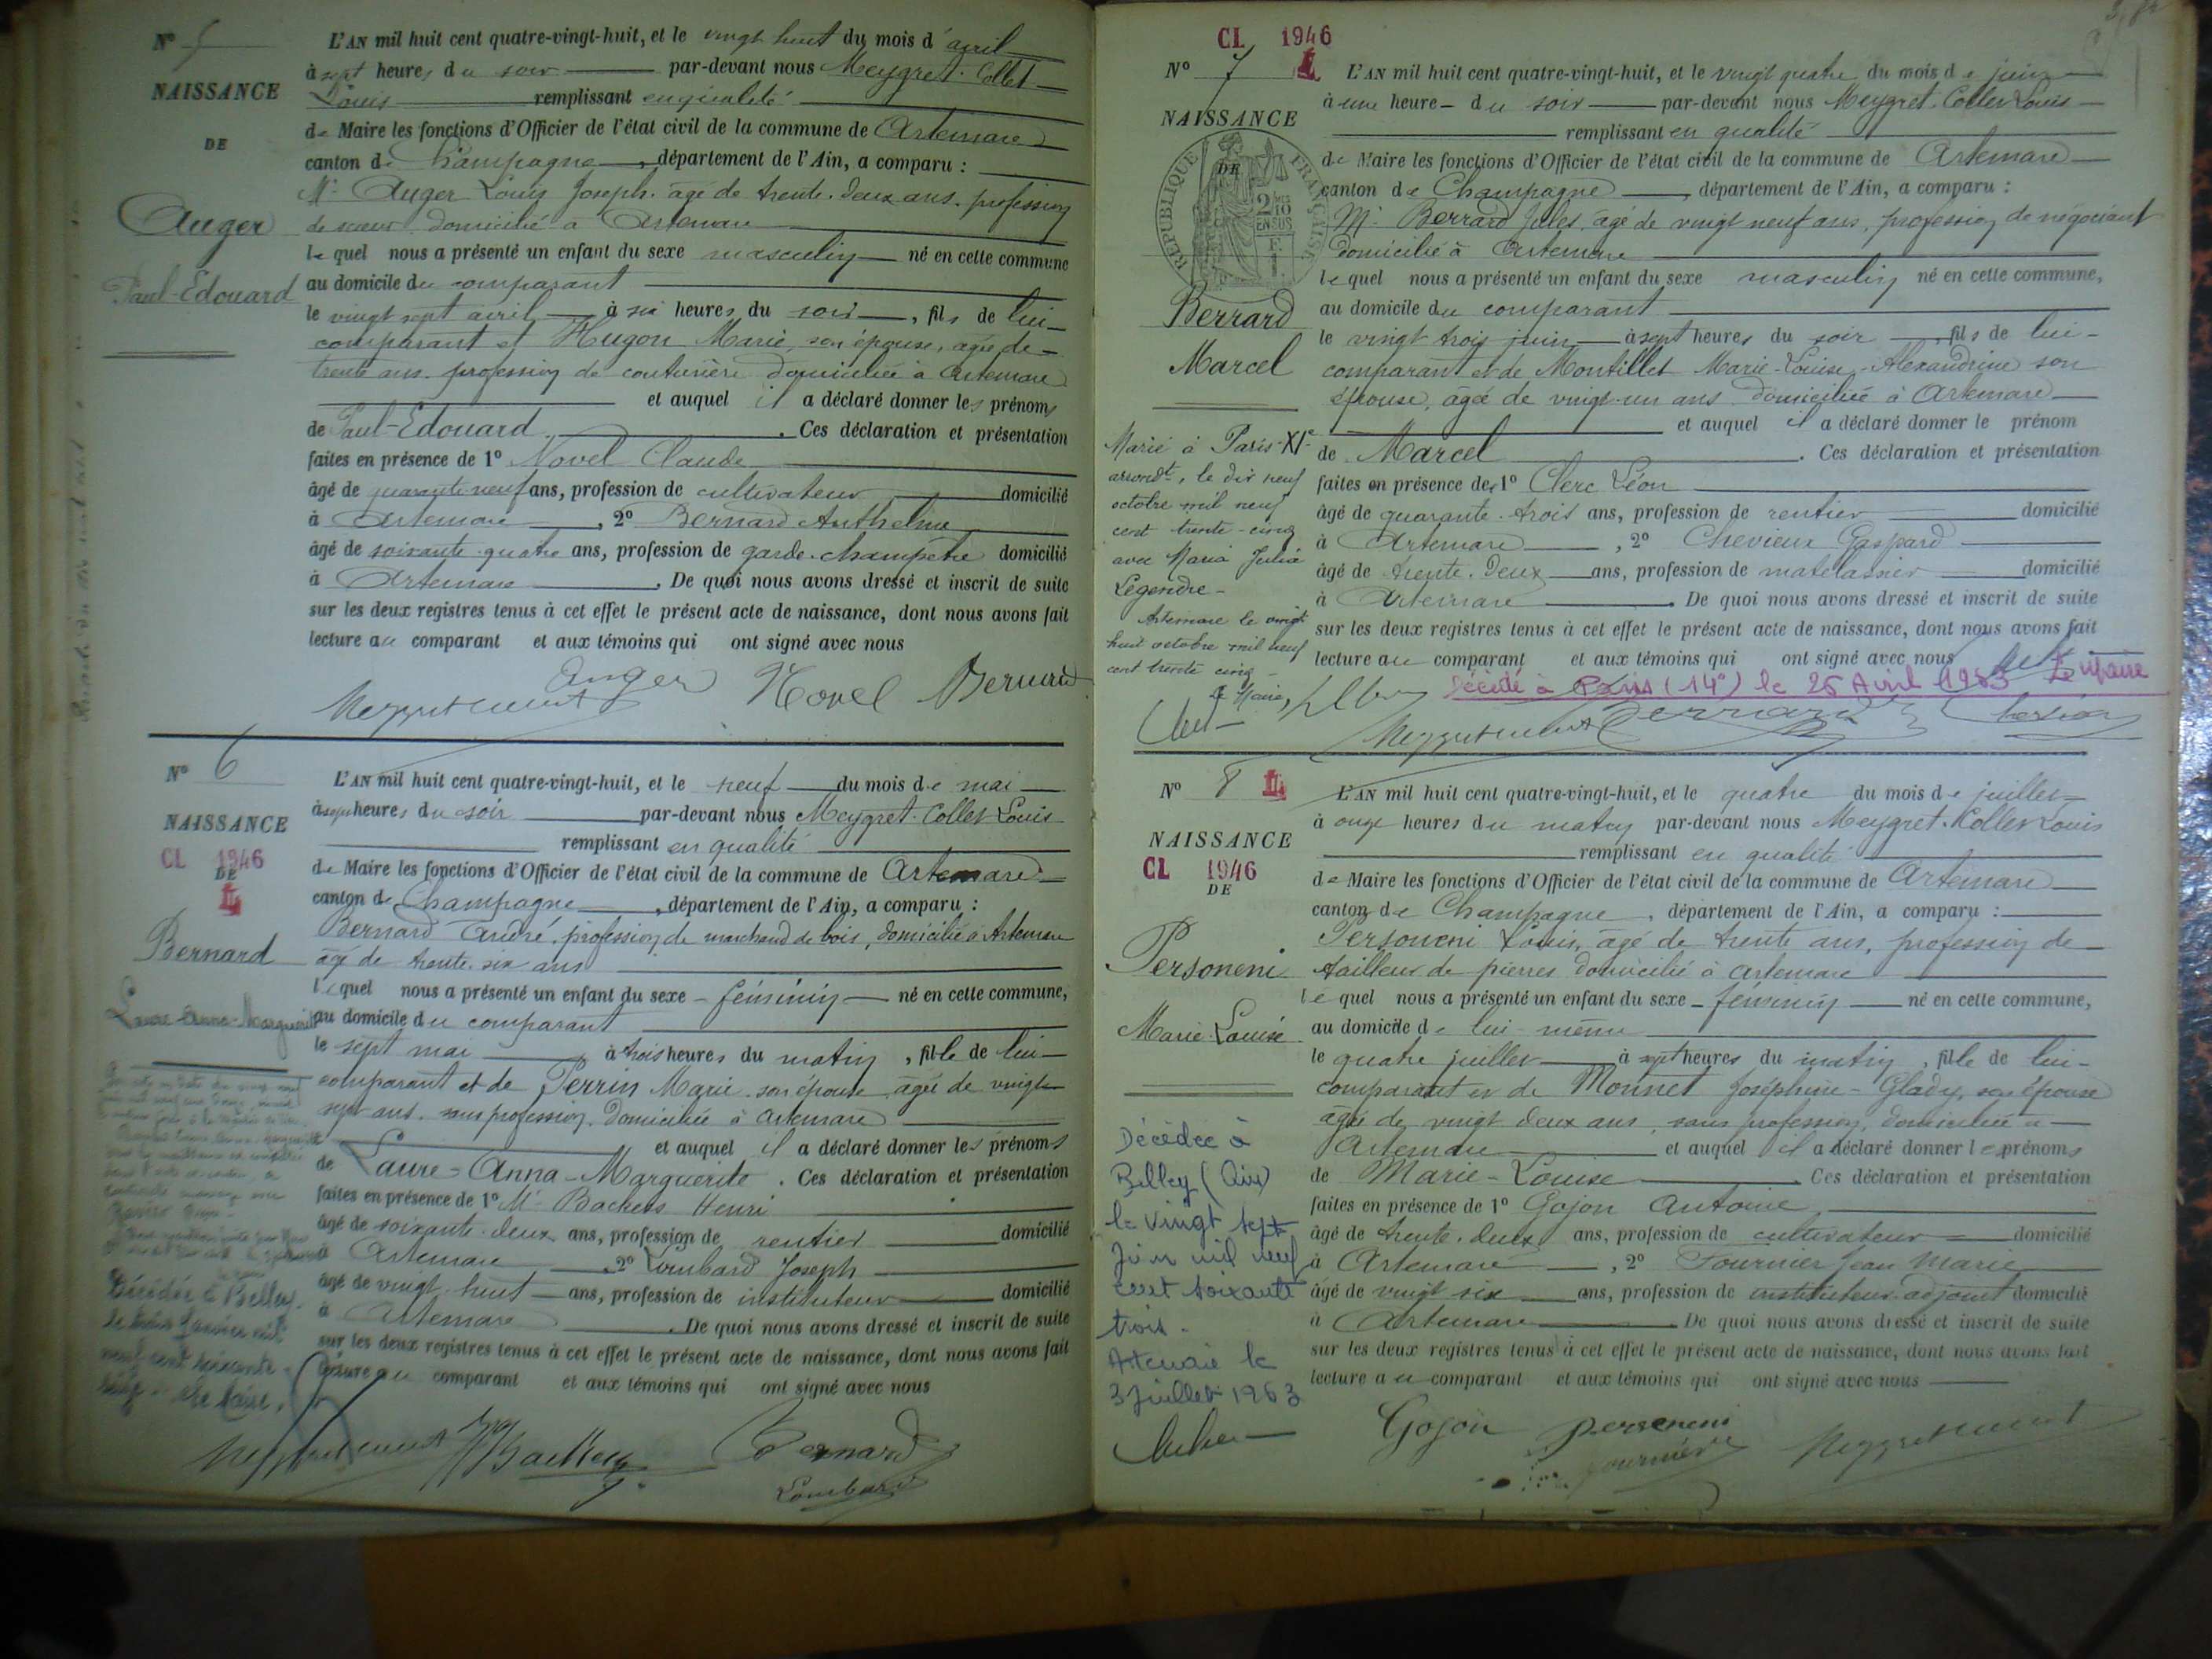 N° 5
NAISSANCE
DE
Auger
Paul-Edouard
L'AN mil huit cent quatre-vingt-huit, et le vingt huit du mois d'avril
à sept heures du soir par-devant nous Meygret-Collet
Louis remplissant en qualité
de Maire les fonctions d'Officier de l'état civil de la commune de Artemare
canton de Champagne, département de l'Ain, a comparu :
Mr Auger Louis Joseph. âgé de trente-deux ans. profession
de domicilié à Artemare
lequel nous a présenté un enfant du sexe masculin né en cette commune
au domicile du comparant
le vingt sept avril à six heures du soir, fils de lui-
comparant et Hugon Marie, son épouse, agée de
trente ans. profession de couturière domiciliée à Artemare
et auquel il a déclaré donner les prénoms
de Paul-Edouard. Ces déclaration et présentation
faites en présence de 1° Novel Claude
âgé de quarante neuf ans, profession de cultivateur domicilié
à Artemare, 2° Bernard Anthelme
âgé de soixante quatre ans, profession de garde-champêtre domicilié
à Artemare. De quoi nous avons dressé et inscrit de suite
sur les deux registres tenus à cet effet le présent acte de naissance, dont nous avons fait
lecture au comparant et aux témoins qui ont signé avec nous
Auger Novel Bernard
N° 6
NAISSANCE
CL 1946
DE
Bernard
Laure-Anna-Marguerite
L'AN mil huit cent quatre-vingt-huit, et le neuf du mois de mai
à sept heures du soir par-devant nous Meygret-Collet Louis
remplissant en qualité
de Maire les fonctions d'Officier de l'état civil de la commune de Artemare
canton de Champagne, département de l'Ain, a comparu :
Bernard André, profession de marchand de bois, domicilié à Artemare
âgé de trente-six ans
lequel nous a présenté un enfant du sexe féminin né en cette commune,
au domicile du comparant
le sept mai à trois heures du matin, fille de lui-
comparant et de Perrin Marie son épouse agée de vingt
sept ans. sans profession. domiciliée à Artemare
et auquel il a déclaré donner les prénoms
de Laure-Anna-Marguerite. Ces déclaration et présentation
faites en présence de 1° Mr Henri
âgé de soixante-deux ans, profession de rentier domicilié
à Artemare, 2° Lombard Joseph
âgé de vingt-huit ans, profession de instituteur domicilié
à Artemare. De quoi nous avons dressé et inscrit de suite
sur les deux registres tenus à cet effet le présent acte de naissance, dont nous avons fait
lecture au comparant et aux témoins qui ont signé avec nous
Décédée à Belley
le trois Janvier mil
neuf cent soixante
Le Maire,
Bernard
Lombard
CL 1946
N° 7
NAISSANCE
RÉPUBLIQUE FRANÇAISE
DE
Berrard
Marcel
L'AN mil huit cent quatre-vingt-huit, et le vingt quatre du mois de juin
à une heure du soir par-devant nous Meygret-Collet Louis
remplissant en qualité
de Maire les fonctions d'Officier de l'état civil de la commune de Artemare
canton de Champagne, département de l'Ain, a comparu :
Mr Berrard Jules, agé de vingt neuf ans, profession de négociant
domicilié à Artemare
lequel nous a présenté un enfant du sexe masculin né en cette commune,
au domicile du comparant
le vingt trois juin à sept heures du soir, fils de lui-
comparant et de Montillet Marie-Louise-Alexandrine son
épouse, agée de vingt-un ans domiciliée à Artemare
et auquel il a déclaré donner le prénom
de Marcel. Ces déclaration et présentation
faites en présence de 1° Clerc Léon
âgé de quarante-trois ans, profession de rentier domicilié
à Artemare, 2° Chevieux Gaspard
âgé de trente-deux ans, profession de matelassier domicilié
à Artemare. De quoi nous avons dressé et inscrit de suite
sur les deux registres tenus à cet effet le présent acte de naissance, dont nous avons fait
lecture au comparant et aux témoins qui ont signé avec nous
Marié à Paris XIe
arrondt, le dix neuf
octobre mil neuf
cent trente-cinq
avec Maria Julia
Legendre-
Artemare le vingt
huit octobre mil neuf
cent trente cinq
Le Maire,
Décédé à Paris (14e) le 25 Avril 1983 Le Maire
Berrard
N° 8
NAISSANCE
CL 1946
DE
Personeni
Marie-Louise
L'AN mil huit cent quatre-vingt-huit, et le quatre du mois de juillet
à onze heures du matin par-devant nous Meygret-Collet Louis
remplissant en qualité
de Maire les fonctions d'Officier de l'état civil de la commune de Artemare
canton de Champagne, département de l'Ain, a comparu :
Personeni Louis, agé de trente ans, profession de
tailleur de pierres domicilié à Artemare
lequel nous a présenté un enfant du sexe féminin né en cette commune,
au domicile de lui-même
le quatre juillet à sept heures du matin, fille de lui-
comparant et de Monnet Joséphine-Glady, son épouse
agée de vingt deux ans, sans profession, domiciliée à
Artemare et auquel il a déclaré donner le prénoms
de Marie-Louise. Ces déclaration et présentation
faites en présence de 1° Gojon Antoine
âgé de trente-deux ans, profession de cultivateur domicilié
à Artemare, 2° Fournier Jean Marie
âgé de vingt six ans, profession de instituteur adjoint domicilié
à Artemare. De quoi nous avons dressé et inscrit de suite
sur les deux registres tenus à cet effet le présent acte de naissance, dont nous avons fait
lecture au comparant et aux témoins qui ont signé avec nous
Décédée à
Belley (Ain)
le vingt sept
Juin mil neuf
cent soixante
trois.
Artemare le
3 Juillet 1963
Gojon Personeni
Fournier